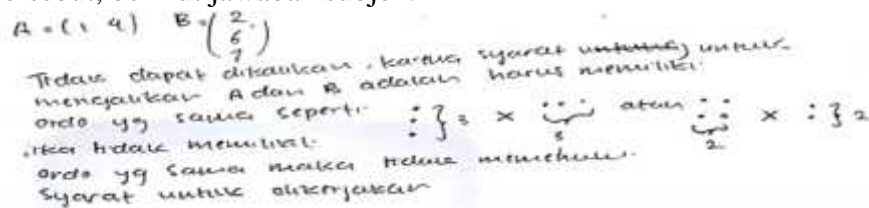 A = (1 4) B = (2 6 7)
Tidak dapat dikalikan, karena syarat untuk
mengalikan A dan B adalah harus memiliki
ordo yg sama seperti : } 3 × ... 3 atau :: 2 × : } 2
jika tidak memiliki
ordo yg sama maka tidak memenuhi
syarat untuk dikerjakan